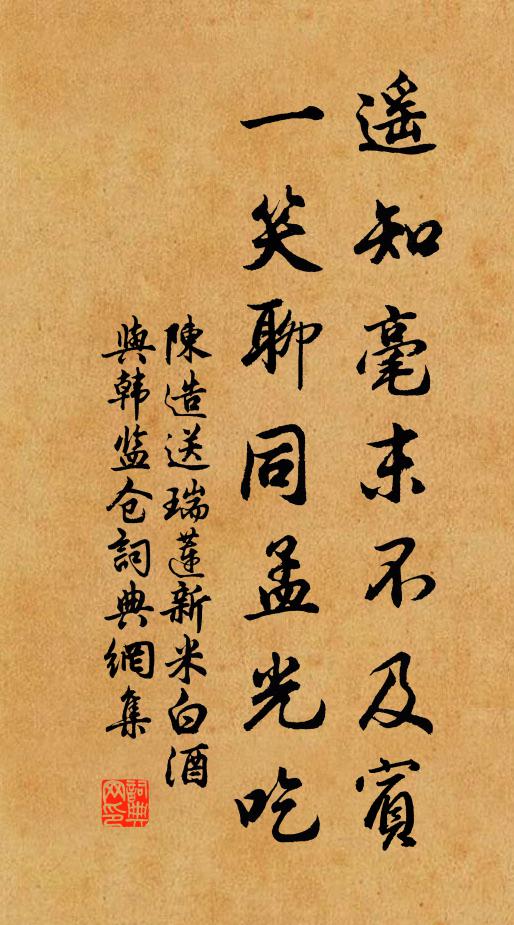 遥知毫末不及賓
一笑聊同孟光吃
陳造送瑞蓮新米白酒
與韩监仓詞典網集
詞典
网印